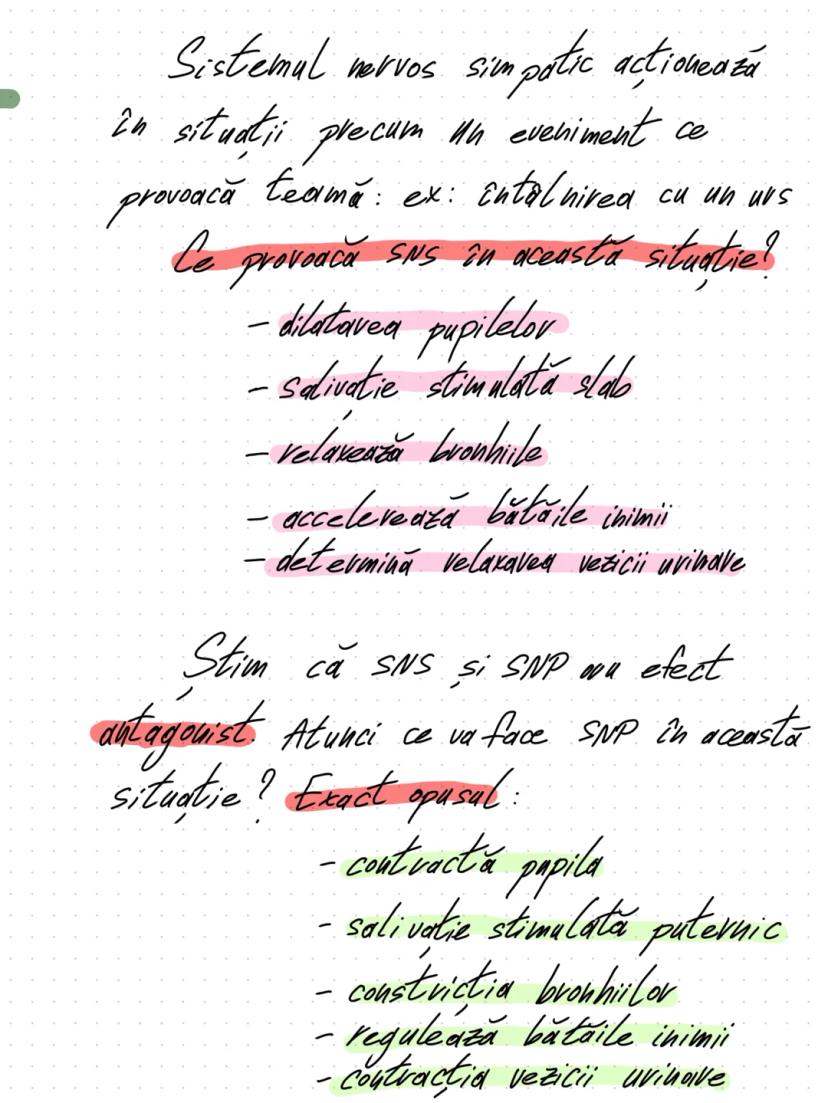 Sistemul nervos simpatic acționează
în situații precum un eveniment ce
provoacă teamă: ex: întâlnirea cu un urs
Ce provoacă SNS în această situație?
- dilatarea pupilelor
- salivație stimulată slab
- relaxează bronhiile
- accelerează bătăile inimii
- determină relaxarea vezicii urinare
Știm că SNS și SNP au efect
antagonist. Atunci ce va face SNP în această
situație? Exact opusul:
- contractă pupila
- salivație stimulată puternic
- constricția bronhiilor
- regulează bătăile inimii
- contracția vezicii urinare